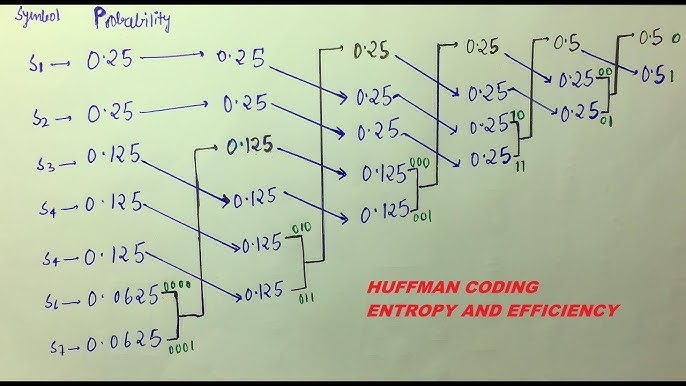 Symbol Probability
S1 → 0.25 0.25 0.25 0.25 0.5 0.5 0
S2 → 0.25 0.25 0.25 0.25 0.25 00 0.5 1
S3 → 0.125 0.125 0.25 0.25 10 0.25 01
S4 → 0.125 0.125 0.125 000 0.25 11
S4 → 0.125 0.125 010 0.125 001
S6 → 0.0625 0000 0.125 011
S7 → 0.0625 0001
HUFFMAN CODING
ENTROPY AND EFFICIENCY